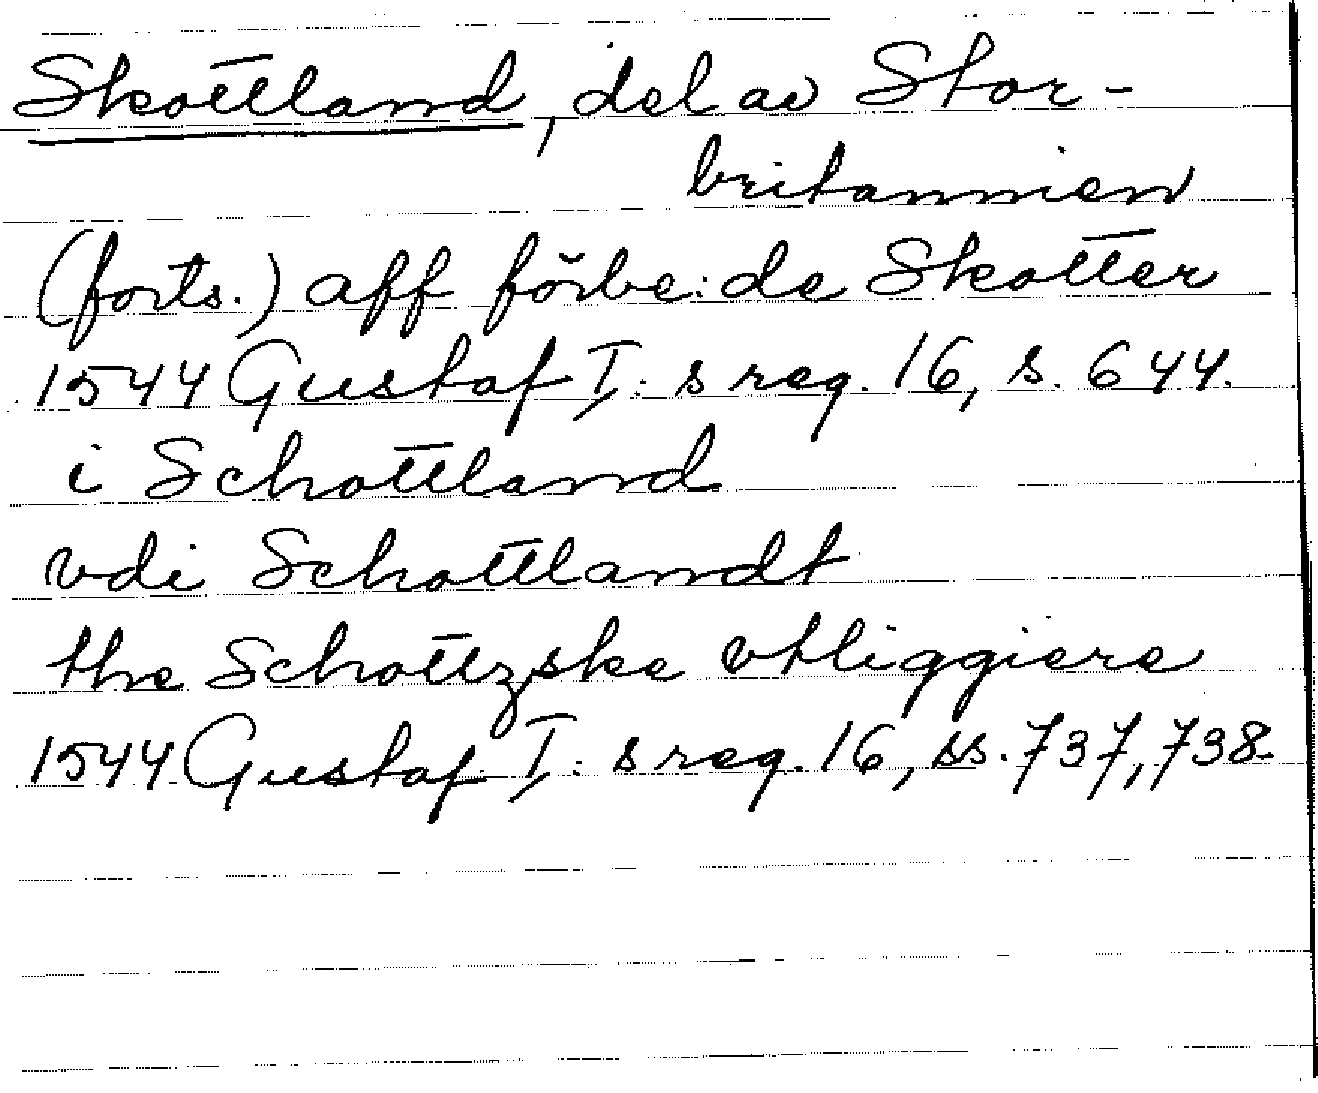 Skottland, del av Stor-
britannien
(forts.) aff förbe:de Skotter
1544 Gustaf I:s reg. 16, s. 644.
i Schottland
vdi Schottlandt
the Schottzske vtliggiere
1544 Gustaf I:s reg. 16, ss. 737, 738.